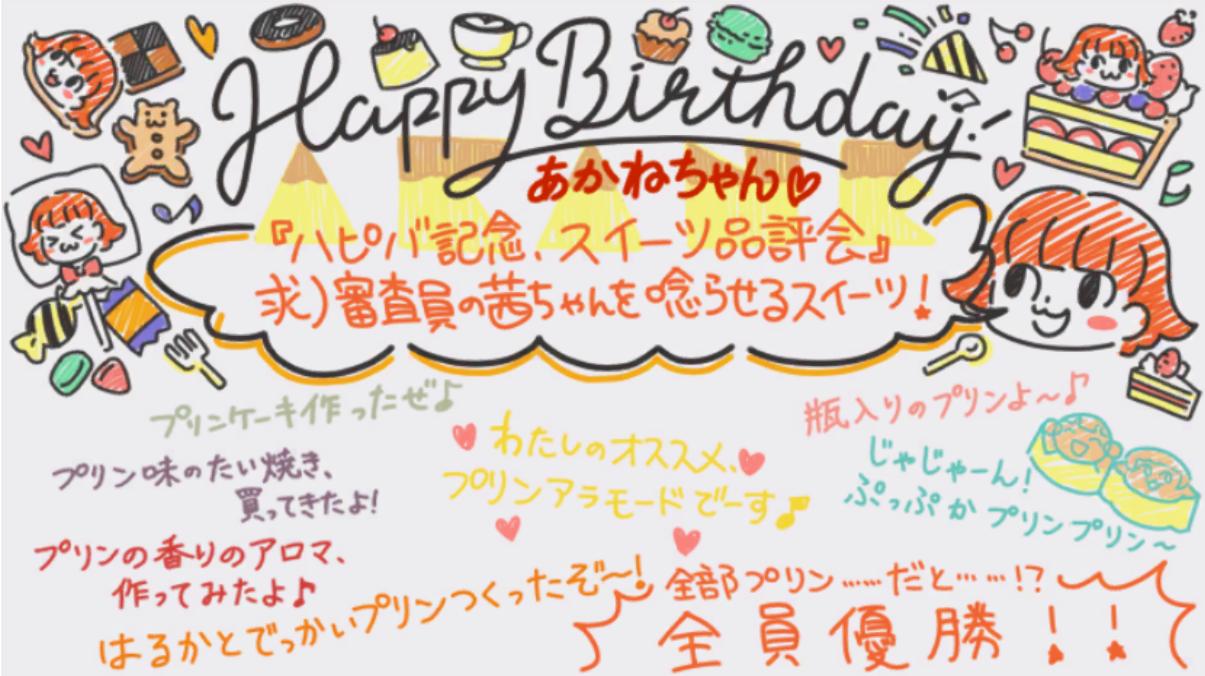 Happy Birthday!
AKANE
あかねちゃん♡
『ハピバ記念、スイーツ品評会』
求)審査員の茜ちゃんを唸らせるスイーツ!
プリンケーキ作ったぜ♪
瓶入りのプリンよ～♪
わたしのオススメ、
プリンアラモードでーす♪
じゃじゃーん!
ぷっぷかプリンプリン～
プリン味のたい焼き、
買ってきたよ!
プリンの香りのアロマ、
作ってみたよ♪
はるかとでっかいプリンつくったぞ～!
全部プリン……だと……!?
全員優勝!!